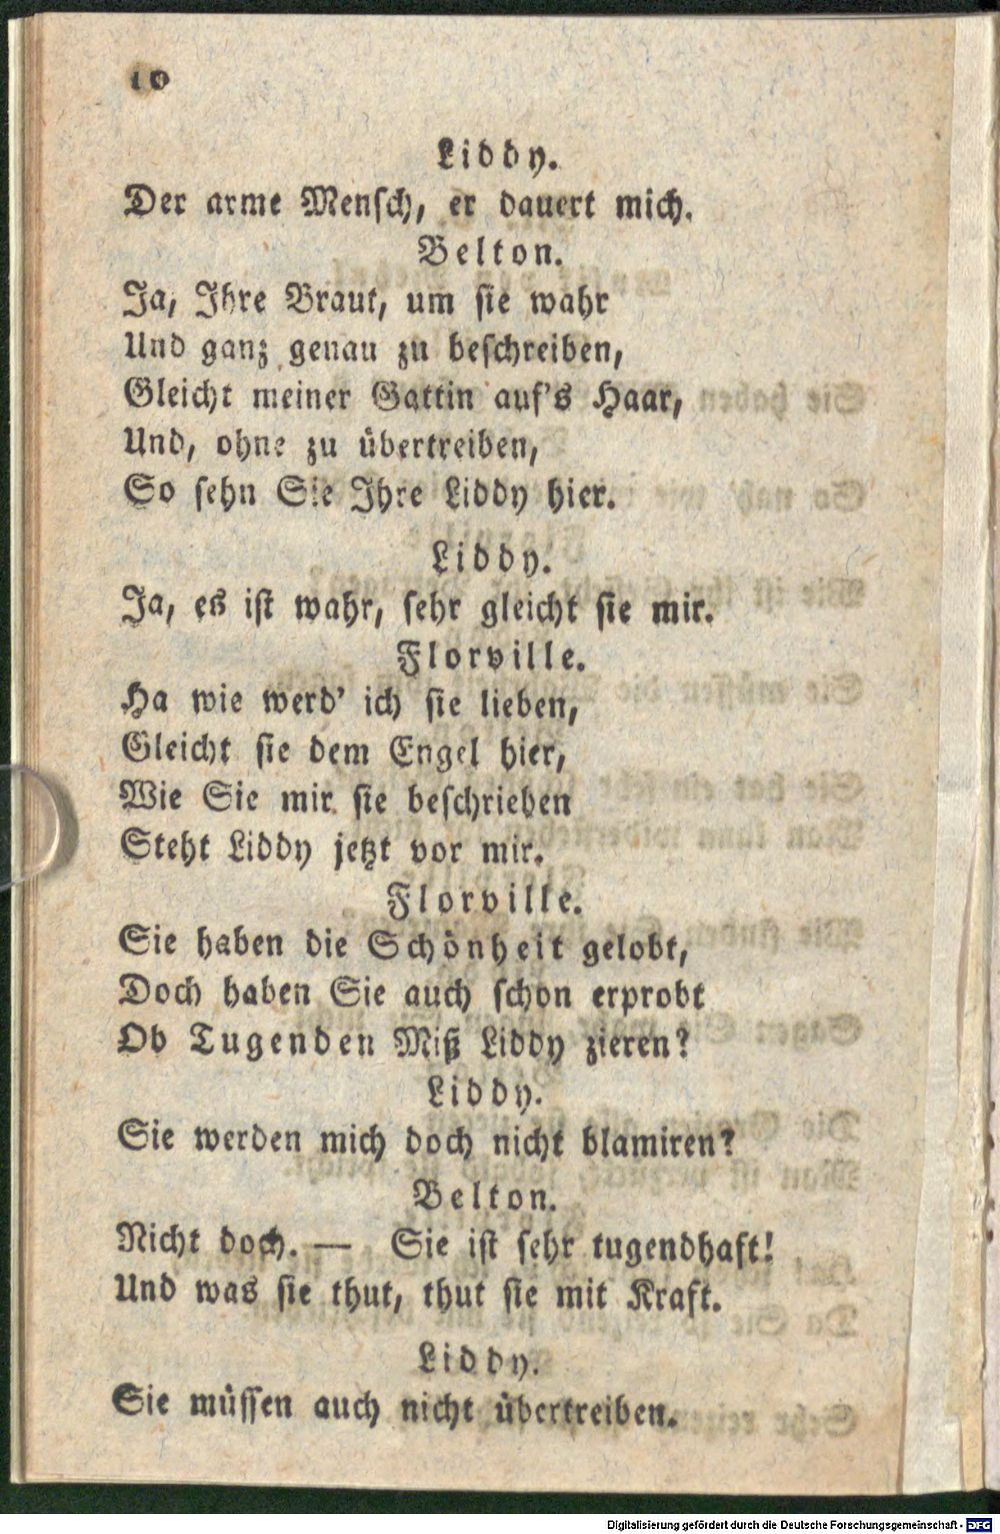 10
Liddy.
Der arme Mensch, er dauert mich.
Belton.
Ja, Ihre Braut, um sie wahr
Und ganz genau zu beschreiben,
Gleicht meiner Gattin auf's Haar,
Und, ohne zu übertreiben,
So sehn Sie Ihre Liddy hier.
Liddy.
Ja, es ist wahr, sehr gleicht sie mir.
Florville.
Ha wie werd' ich sie lieben,
Gleicht sie dem Engel hier,
Wie Sie mir sie beschrieben
Steht Liddy jetzt vor mir.
Florville.
Sie haben die Schönheit gelobt,
Doch haben Sie auch schon erprobt
Ob Tugenden Miß Liddy zieren?
Liddy.
Sie werden mich doch nicht blamiren?
Belton.
Nicht doch. — Sie ist sehr tugendhaft!
Und was sie thut, thut sie mit Kraft.
Liddy.
Sie müssen auch nicht übertreiben.
Digitalisierung gefördert durch die Deutsche Forschungsgemeinschaft - DFG